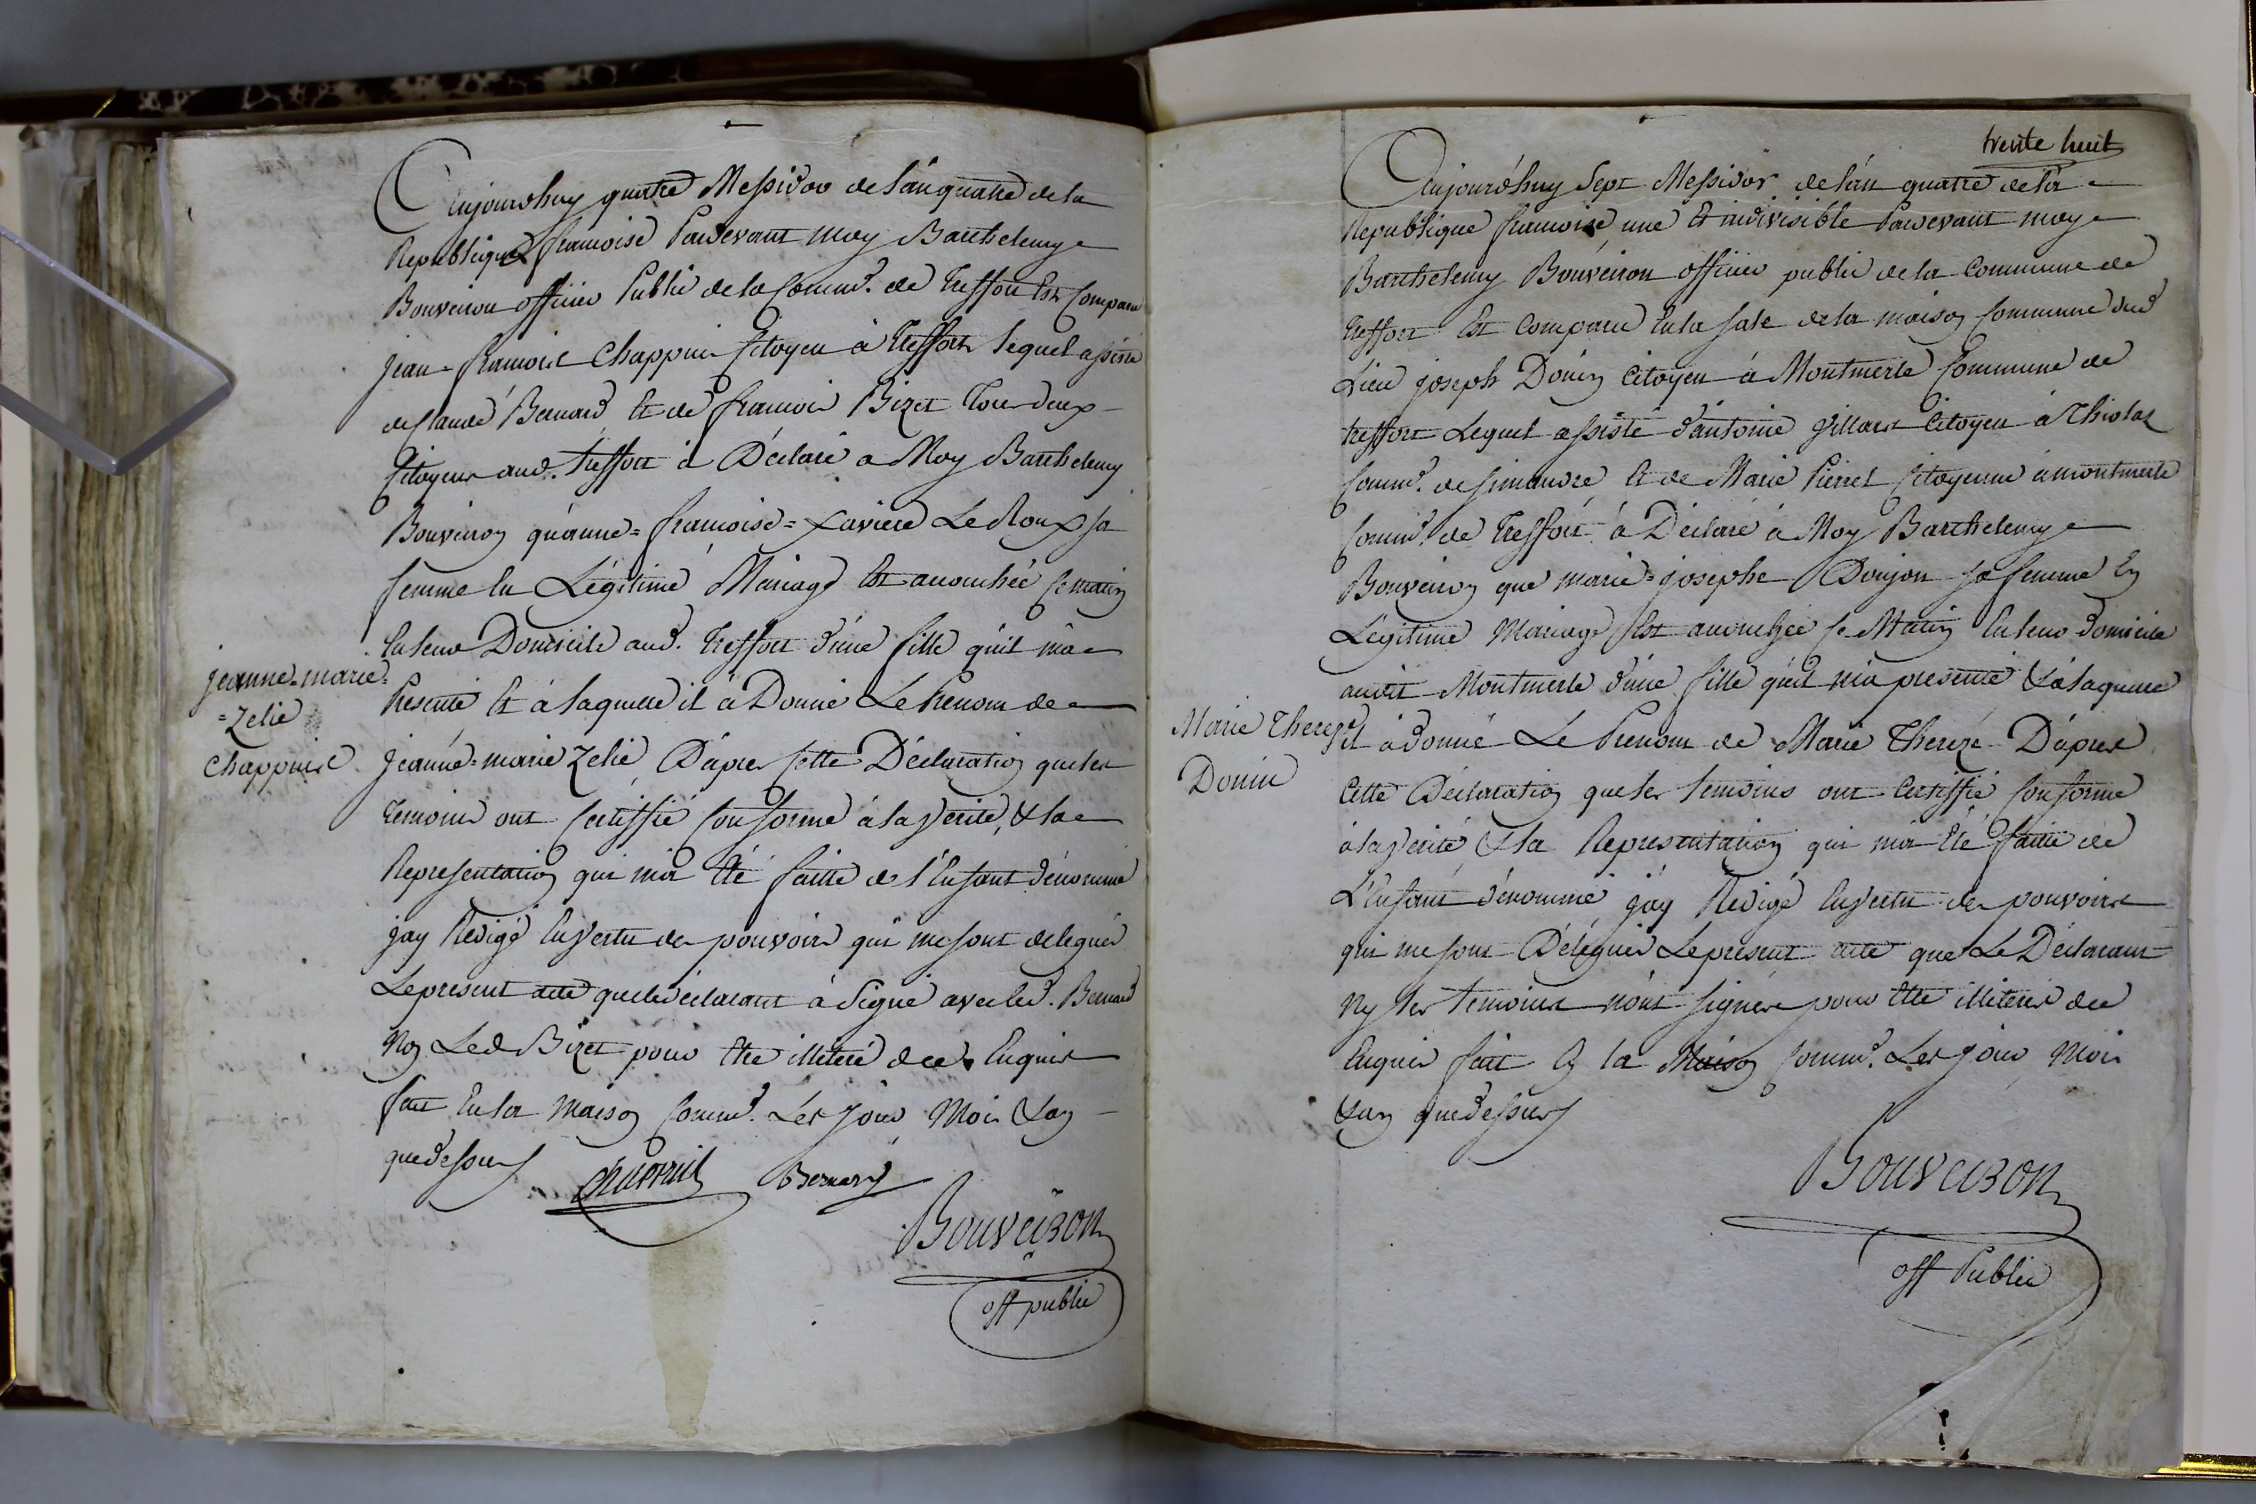 Aujourdhuy quatre Messidor de lan quatre de la
Republique francoise Pardevant moy Barthelemy
Bouveiron officier Public de la Comm.e de Treffort Est Comparu
jean-francois Chappuis Citoyen à Treffort lequel assisté
de Claude Bernard Et de francois Bizet Tous deux
Citoyens aud. treffort à Déclaré a Moy Barthelemy
Bouveiron qu'anne=francoise=Xaviere Le Roux sa
femme En Légitime Mariage Est accouchée ce matin
En leur Domicile aud. Treffort d'une fille qu'il m'a
Presenté Et à laquelle il à Donné Le Prenom de
jeanne=marie Zelie D'apres Cette Déclaration que les
temoins ont Certiffié Conforme à la Verité, & la
Representation qui m'a Eté faitte de l'Enfant dénommé
jay Redigé En Vertu des pouvoirs qui me sont delegués
Le present acte que le déclarant à Signé avec led. Bernard
Non Led Bizet pour Etre illiteré de ce Enquis
fait En la maison Comm.e Les Jour Mois & an
que dessus
jeanne=marie=
=Zelie
Chappuis
Chappuis Bernard
Bouveiron
off public
trente huit
Aujourd'huy Sept Messidor de l'an quatre de la
Republique francoise une Et indivisible Pardevant moy
Barthelemy Bouveiron officier public de la Commune de
treffort Est Comparu En la sale de la maison Commune dud
Lieu joseph Donin Citoyen à Montmerle Commune de
treffort Lequel assisté d'antoine Villars Citoyen à Thiolas
Comm.e de simandre Et de Marie Pierret Citoyenne à montmerle
Comm.e de Treffort à Déclaré à Moy Barthelemy
Bouveiron que marie=josephe Donjon sa femme En
Légitime Mariage Est accouchée ce Matin En leur domicile
audit Montmerle d'une fille qu'il m'a presenté & à laquelle
il à donné Le Prenom de Marie Thereze D'apres
Cette Déclaration que les temoins ont Certiffié Conforme
à la Verité & la Representation qui m'a Eté faitte de
L'Enfant dénommé j'ay Redigé En Vertu des pouvoirs
qui me sont Délégués Le present acte que Le Déclarant
Ny les temoins n'ont signés pour Etre illiterés de ce
Enquis fait En la Maison Comm.e Les jour Mois
& an que dessus
Marie Thereze
Donin
Bouveiron
off Public